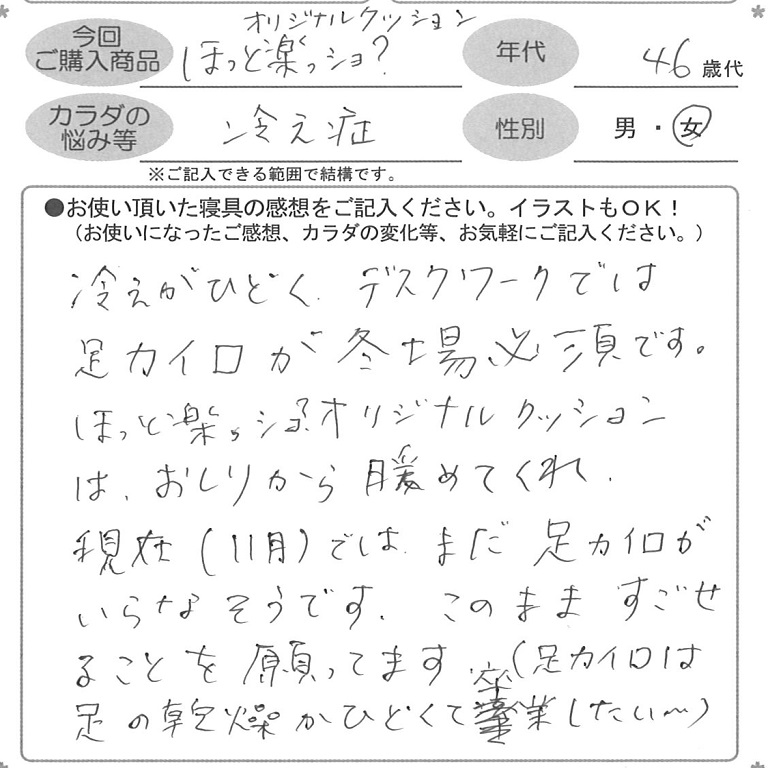 オリジナルクッション
今回
ご購入商品
ほっと楽っショ?
年代
46歳代
カラダの
悩み等
冷え症
性別
男・女
※ご記入できる範囲で結構です。
●お使い頂いた寝具の感想をご記入ください。イラストもOK!
(お使いになったご感想、カラダの変化等、お気軽にご記入ください。)
冷えがひどく、デスクワークでは
足カイロが冬場必須です。
ほっと楽っショ?オリジナルクッション
は、おしりから暖めてくれ、
現在(11月)では、まだ足カイロが
いらなそうです。このまますごせ
ることを願ってます。(足カイロは
足の乾燥がひどくて卒業したい〜)